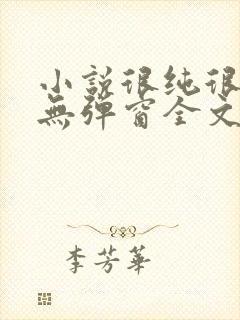 小說很纯很
無彈窗全文
李芳華